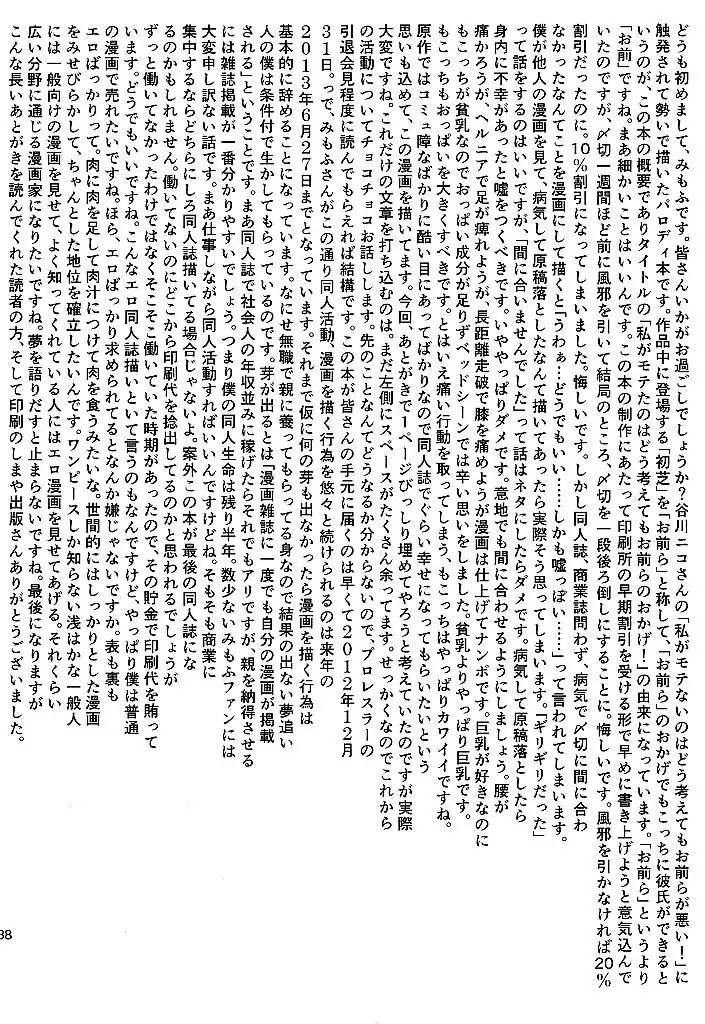 どうも初めまして、みもふです。皆さんいかがお過ごしでしょうか？谷川ニコさんの「私がモテないのはどう考えてもお前らが悪い！」に
触発されて勢いで描いたパロディ本です。作品中に登場する「初芝」を「お前ら」と称して、「お前ら」のおかげでもこっちに彼氏ができると
いうのが、この本の概要でありタイトルの「私がモテたのはどう考えてもお前らのおかげ！」の由来になっています。「お前ら」というより
「お前」ですね。まあ細かいことはいいんです。この本の制作にあたって印刷所の早期割引を受ける形で早めに書き上げようと意気込んで
いたのですが、〆切一週間ほど前に風邪を引いて結局のところ、〆切を一段後ろ倒しにすることに。悔しいです。風邪を引かなければ20%
割引だったのに。10%割引になってしまいました。悔しいです。しかし同人誌、商業誌問わず、病気で〆切に間に合わ
なかったなんてことを漫画にして描くと「うわぁ…どうでもいい……しかも嘘っぽい……」って言われてしまいます。
僕が他人の漫画を見て、病気して原稿落としたなんて描いてあったら実際そう思ってしまいます。「ギリギリだった」
って話をするのはいいですが、「間に合いませんでした」って話はネタにしたらダメです。病気して原稿落としたら
身内に不幸があったと嘘をつくべきです。いややっぱりダメです。意地でも間に合わせるようにしましょう。腰が
痛かろうが、ヘルニアで足が痺れようが、長距離走破で膝を痛めようが漫画は仕上げてナンボです。巨乳が好きなのに
もこっちが貧乳なのでおっぱい成分が足りずベッドシーンでは辛い思いをしました。貧乳よりやっぱり巨乳です。
もこっちもおっぱいを大きくすべきです。とはいえ痛い行動を取ってしまう、もこっちはやっぱりカワイイですね。
原作ではコミュ障なばかりに酷い目にあってばかりなので同人誌でぐらい幸せになってもらいたいという
思いも込めて、この漫画を描いてます。今回、あとがきで1ページびっしり埋めてやろうと考えていたのですが実際
大変ですね。これだけの文章を打ち込むのは。まだ左側にスペースがたくさん余ってます。せっかくなのでこれから
の活動についてチョコチョコお話しします。先のことなんてどうなるか分からないので、プロレスラーの
引退会見程度に読んでもらえれば結構です。この本が皆さんの手元に届くのは早くて2012年12月
31日。っで、みもふさんがこの通り同人活動、漫画を描く行為を悠々と続けられるのは来年の
2013年6月27日までとなっています。それまで仮に何の芽も出なかったら漫画を描く行為は
基本的に辞めることになっています。なにせ無職で親に養ってもらってる身なので結果の出ない夢追い
人の僕は条件付で生かしてもらっているのです。芽が出るとは「漫画雑誌に一度でも自分の漫画が掲載
される」ということです。まあ同人誌で社会人の年収並みに稼げたらそれでもアリですが、親を納得させる
には雑誌掲載が一番分かりやすいでしょう。つまり僕の同人生命は残り半年。数少ないみもふファンには
大変申し訳ない話です。まあ仕事しながら同人活動すればいいんですけどね。そもそも商業に
集中するならどちらにしろ同人誌描いてる場合じゃないよ。案外この本が最後の同人誌にな
るのかもしれません。働いてないのにどこから印刷代を捻出してるのかと思われるでしょうが
ずっと働いてなかったわけではなくそこそこ働いていた時期があったので、その貯金で印刷代を賄って
います。どうでもいいですね。こんなエロ同人誌描いといて言うのもなんですけど、やっぱり僕は普通
の漫画で売れたいですね。ほら、エロばっかり求められてるとなんか嫌じゃないですか。表も裏も
エロばっかりって。肉に肉を足して肉汁につけて肉を食うみたいな。世間的にはしっかりとした漫画
をみせびらかして、ちゃんとした地位を確立したいんです。ワンピースしか知らない浅はかな一般人
には一般向けの漫画を見せて、よく知ってくれている人にはエロ漫画を見せてあげる。それくらい
広い分野に通じる漫画家になりたいですね。夢を語りだすと止まらないですね。最後になりますが
こんな長いあとがきを読んでくれた読者の方、そして印刷のしまや出版さんありがとうございました。
38